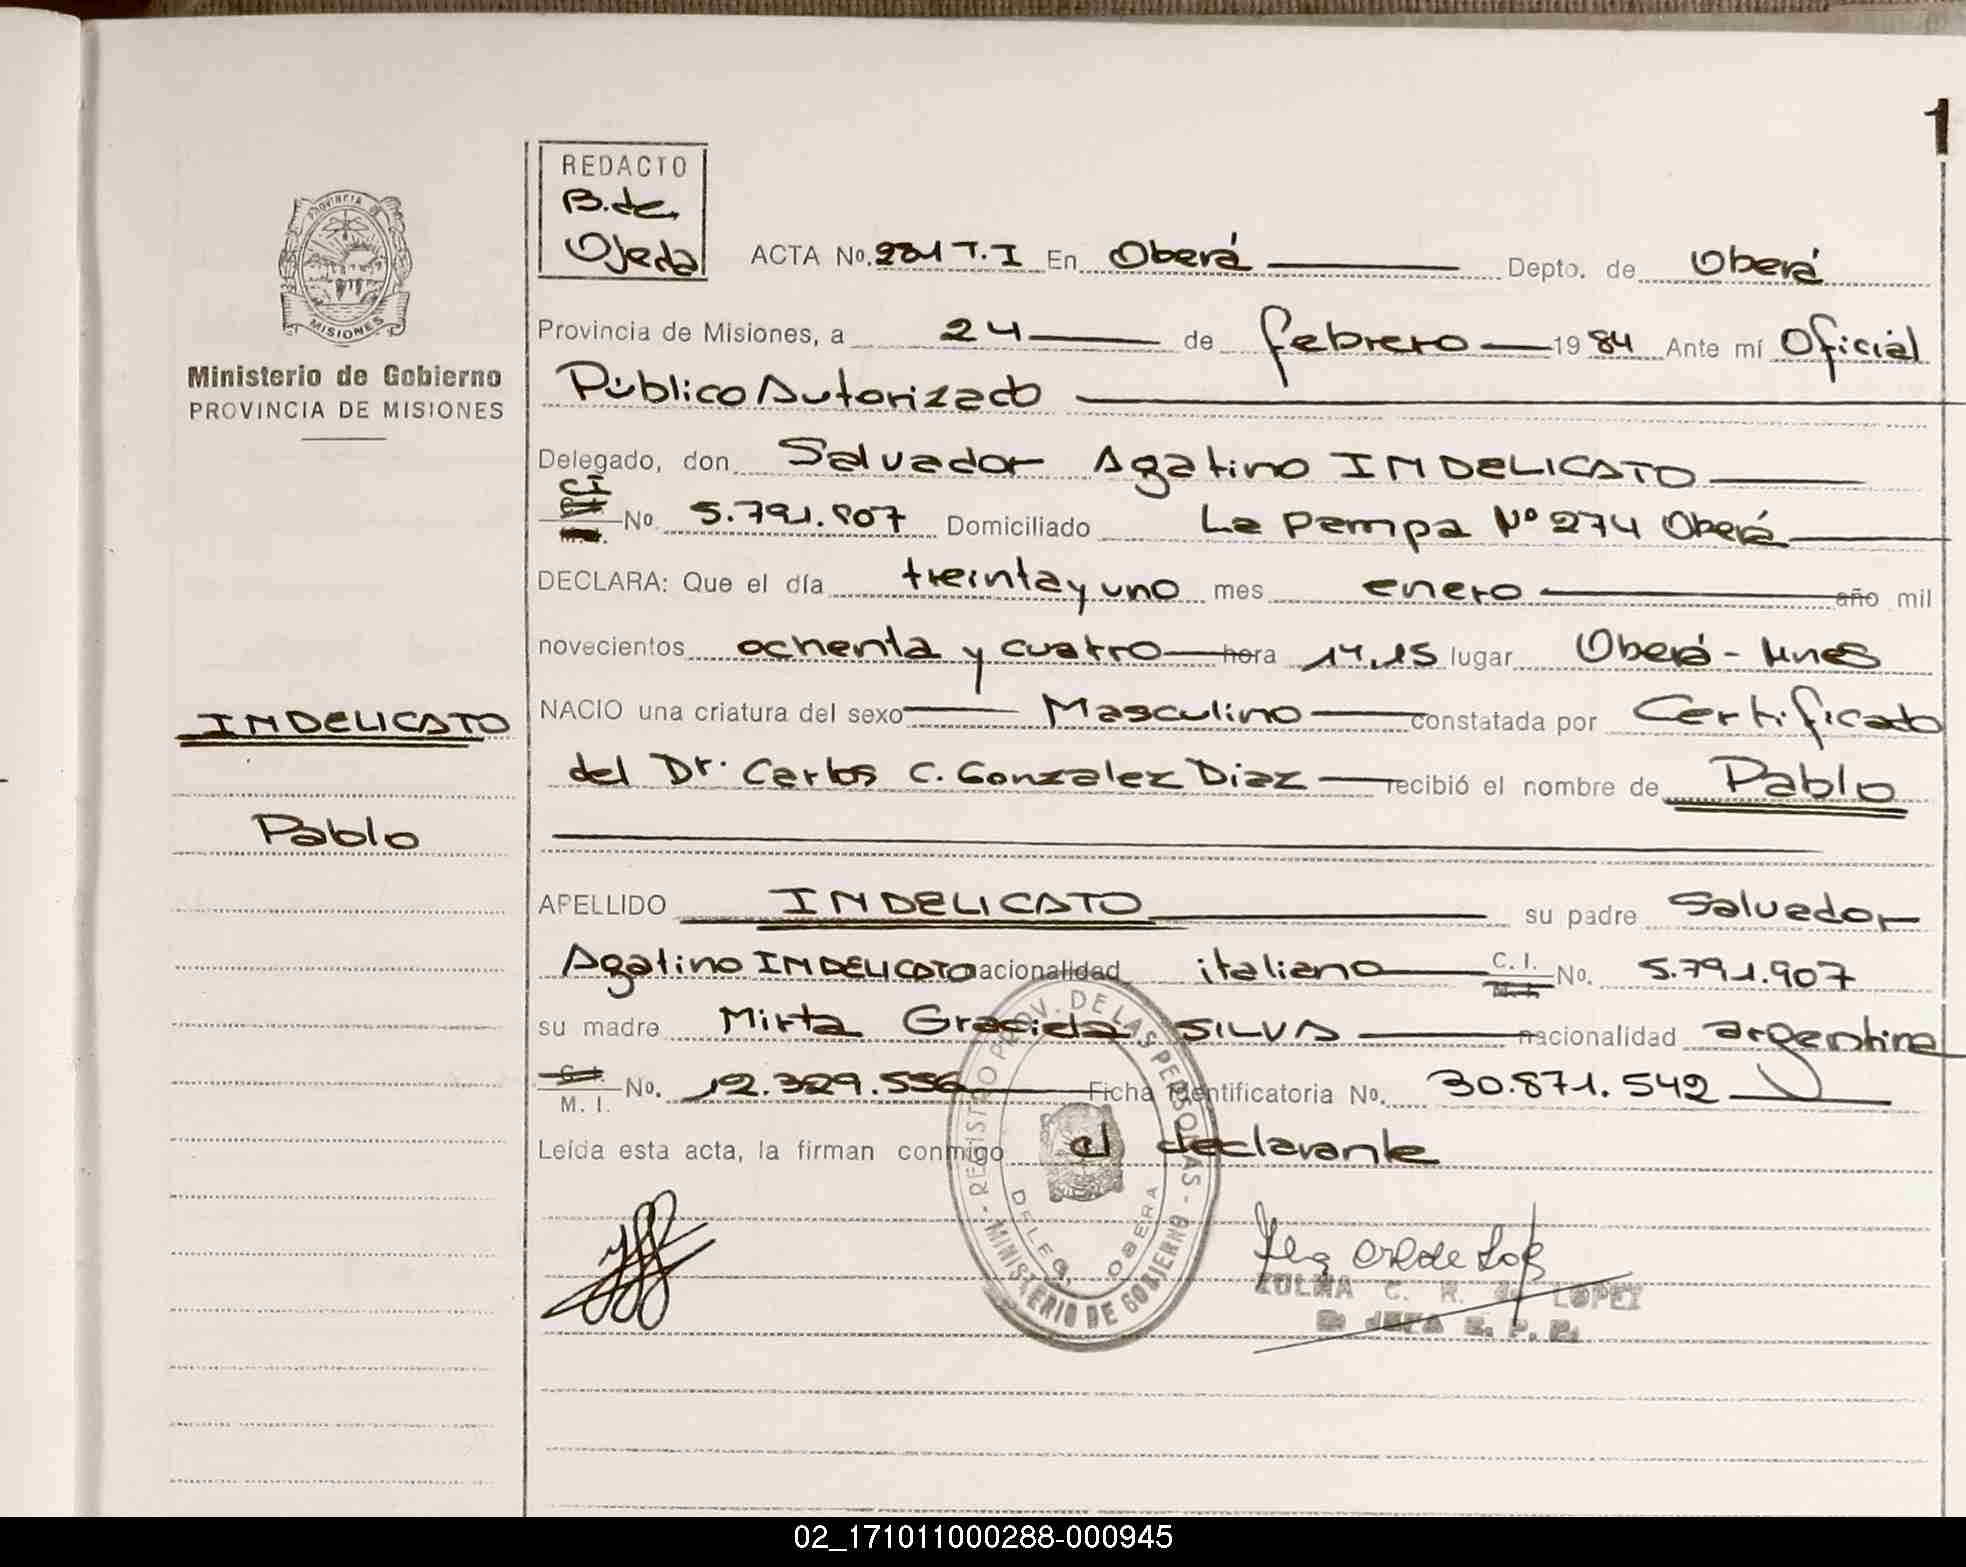 1
REDACTO
B. de
Ojeda
PROVINCIA DE
MISIONES
Ministerio de Gobierno
PROVINCIA DE MISIONES
INDELICATO
Pablo
ACTA No. 281 T. I En Oberá Depto. de Oberá
Provincia de Misiones, a 24 de febrero 1984 Ante mí Oficial
Público Autorizado
Delegado, don Salvador Agatino INDELICATO
CI No 5.791.907 Domiciliado La Pampa Nº 274 Oberá
DECLARA: Que el día treinta y uno mes enero año mil
novecientos ochenta y cuatro hora 14,15 lugar Oberá - Mnes
NACIO una criatura del sexo Masculino constatada por Certificado
del Dr. Carlos C. Gonzalez Diaz recibió el nombre de Pablo
APELLIDO INDELICATO su padre Salvador
Agatino INDELICATO nacionalidad italiano C. I. No. 5.791.907
su madre Mirta Graciela SILVA nacionalidad argentina
M. I. No. 12.329.556 Ficha Identificatoria No. 30.871.542
Leída esta acta, la firman conmigo el declarante
- REGISTRO PROV. DE LAS PERSONAS - MINISTERIO DE GOBIERNO
DELEG. OBERA
ZULMA C. R. de LOPEZ
JEFA
02_171011000288-000945